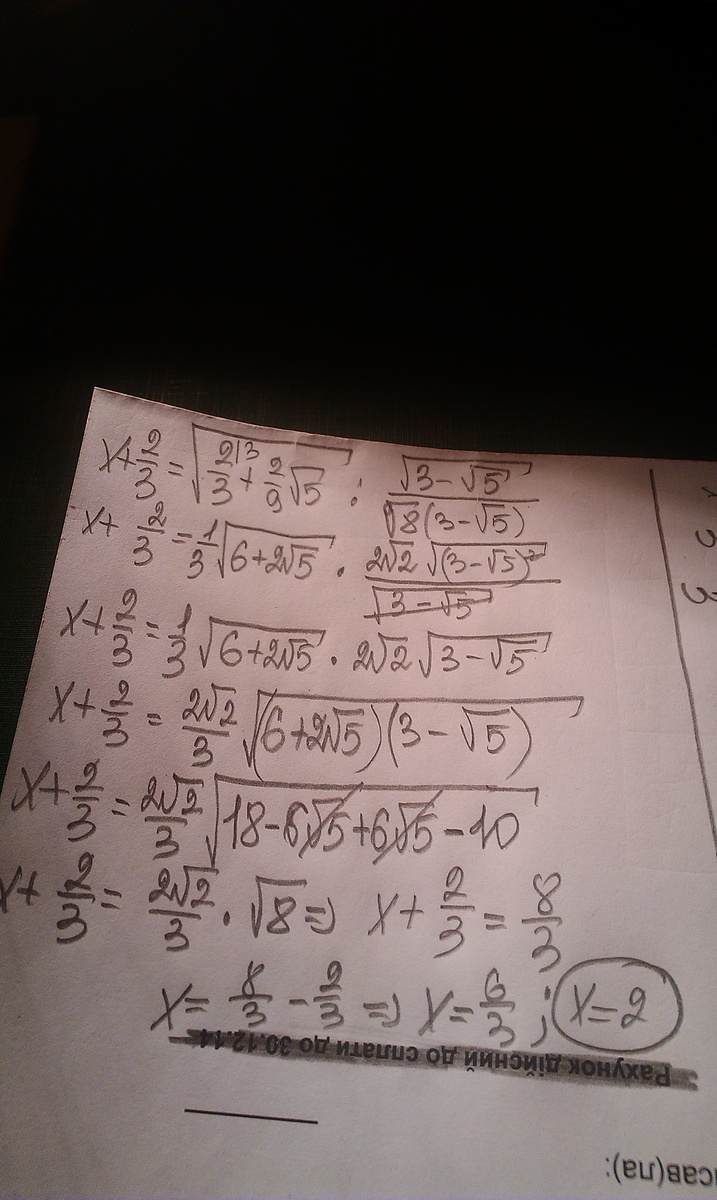 x+2/3=√(2^{\3}/3+2/9√5) : √(3-√5)/(√8(3-√5))
x+2/3=1/3√(6+2√5)·2√2√(3-√5)²/√(3-√5)
x+2/3=1/3√(6+2√5)·2√2√(3-√5)
x+2/3=2√2/3√((6+2√5)(3-√5))
x+2/3=2√2/3√(18-6√5+6√5-10)
x+2/3=2√2/3·√8=>x+2/3=8/3
x=8/3-2/3=>x=6/3; x=2
Рахунок дійсний до сплати до 30.12.14
сав(ла):
3